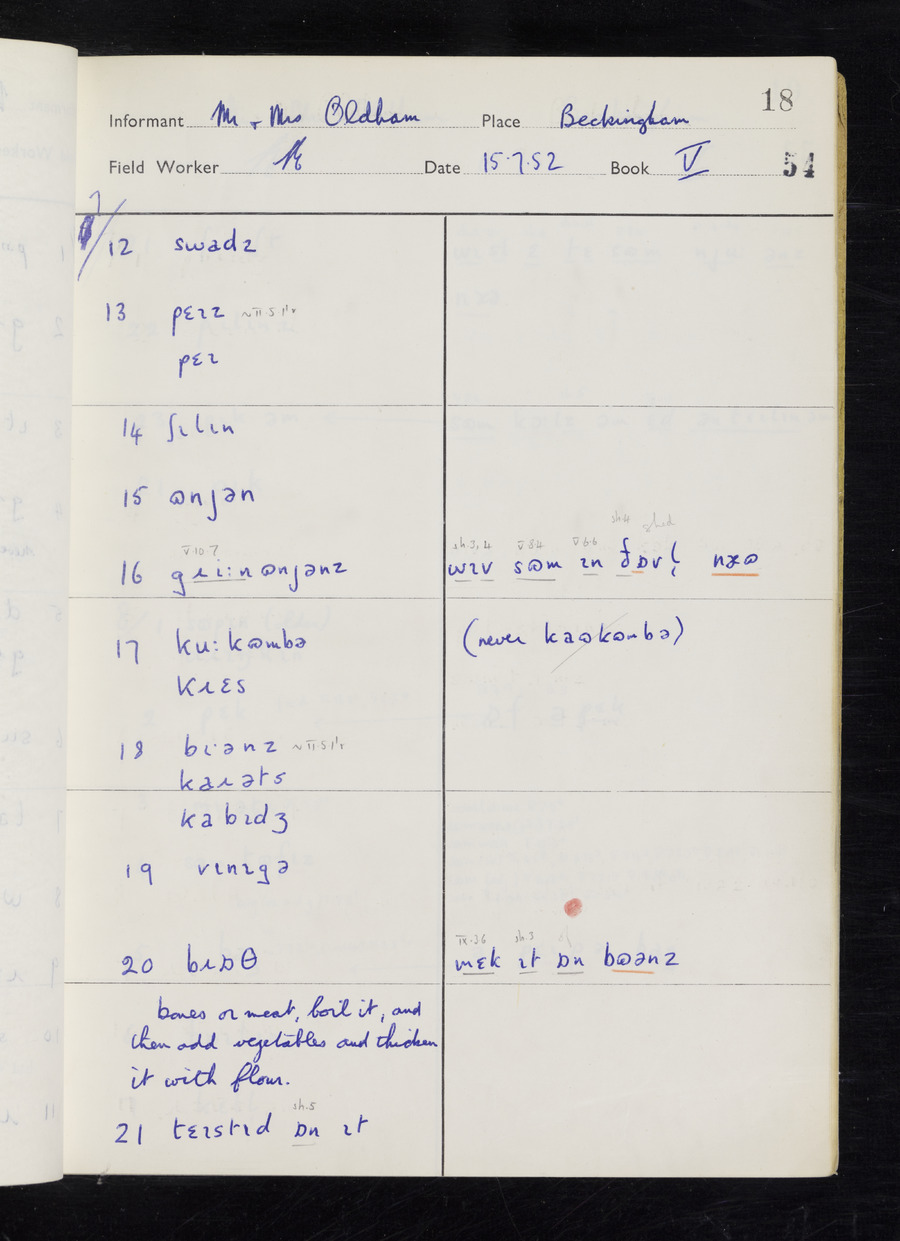 18
Informant Mr + Mrs Oldham Place Beckingham
Field Worker Date 15.7.52 Book V 54
7/
12 swadz
13 pɛɪz ~II.5
pɛɪ
14 ʃɪlɪn
15 ɷnjən
16 gɹi:nɷnjənz wɪv sɷm ɪn nɪɷ
V.10.7 sh.3,4 V.8.4 V.6.6 sh.4
17 ku:kɷmbə (never kaɷkɷmbə)
kɹɛs
18 bɪ·ənz ~II.5
kaɹəts
kabɪdʒ
19 vɪnɪgə
20 bɹɒθ mɛk ɪt ɒn bɷənz
IX.3.6 sh.3
bones or meat, boil it, and
then add vegetables and thicken
it with flour.
sh.5
21 tɛɪstɪd ɒn ɪt